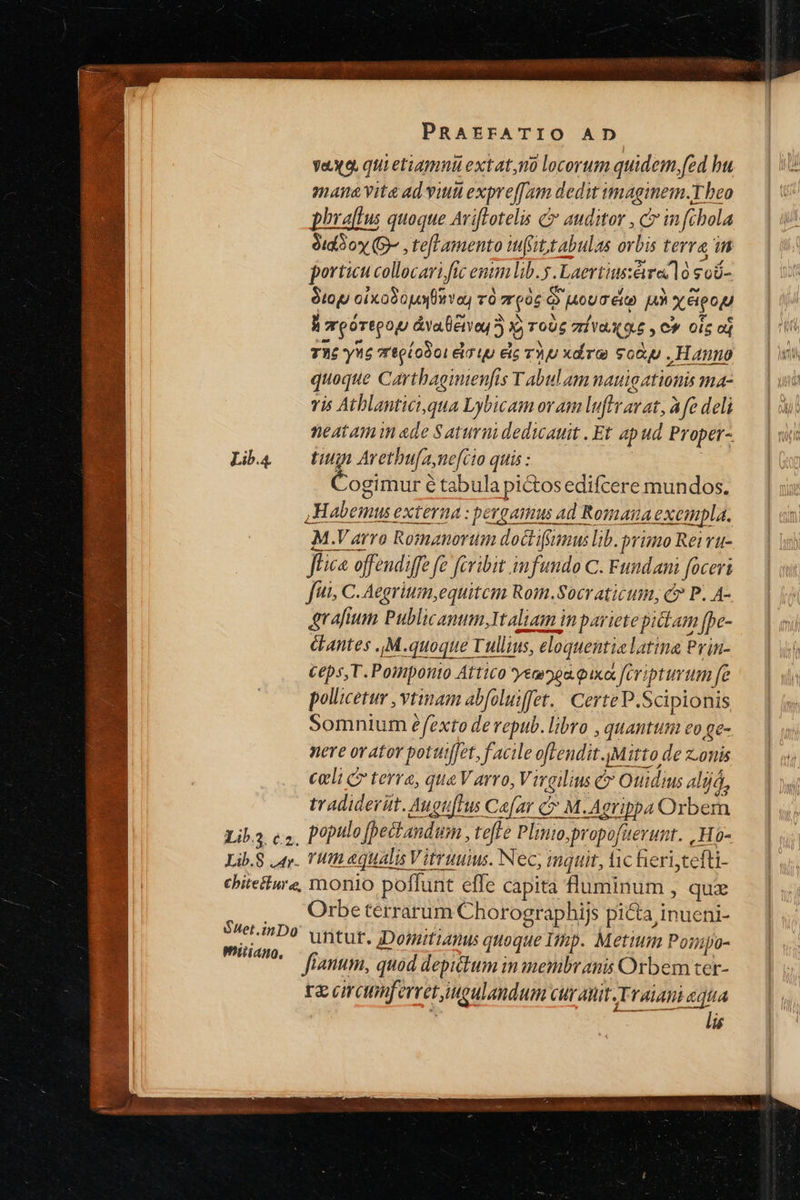 PRAEFATIO AD
νακα, qui etiamnū extat, nō locorum quidem, sed hu
mana vitæ ad viuū expressam dedit imaginem. Theo
phrastus quoque Aristotelis & auditor, & in schola
διάδοχος, testamento iussit, tabulas orbis terræ in
porticu collocari, sic enim lib. 5. Laertius: ἔπειτα τὸ στοΐ-
διον οἰκοδομηθῆναι τὸ πρὸς τῷ μουσείῳ μὴ χεῖρον
ἢ πρότερον ἀναθεῖναι ἢ καὶ τοὺς πίνακας, ἐν οἷς αἱ
τῆς γῆς περίοδοι εἰσιν εἰς τὴν κάτω στοάν. Hanno
quoque Carthaginiensis Tabulam nauigationis ma-
ris Athlantici, qua Lybicam oram lustrarat, à se deli
neatam in æde Saturni dedicauit. Et apud Proper-
Lib.4 tium Arethusa, nescio quis:
Cogimur è tabula pictos edifcere mundos.
Habemus externa: pergamus ad Romana exempla.
M. Varro Romanorum doctissimus lib. primo Rei ru-
sticæ offendisse se scribit in fundo C. Fundani soceri
sui, C. Aegrium, equitem Rom. Socraticum, & P. A-
grasium Publicanum, Italiam in pariete pictam spe-
ctantes. M. quoque Tullius, eloquentiæ latinæ Prin-
ceps, T. Pomponio Attico γεωγραφικὰ scripturum se
pollicetur, vtinam absoluisset. Certe P. Scipionis
Somnium è sexto de repub. libro, quantum eo ge-
nere orator potuisset, facile ostendit. Mitto de zonis
cæli & terræ, quæ Varro, Virgilius & Ouidius alijq́;
tradiderūt. Augustus Cæsar & M. Agrippa Orbem
Lib.3. c.2. populo spectandum, teste Plinio, proposuerunt. Ho-
Lib.8 Ar- rum æqualis Vitruuius. Nec, inquit, sic fieri, testi-
chitecturæ, monio possunt esse capita fluminum, quæ
Orbe terrarum Chorographijs picta, inueni-
Suet. in Do untur. Domitianus quoque Imp. Metium Pompo-
mitiano. sianum, quód depictum in membranis Orbem ter-
ræ circumferret, iugulandum curauit. Traiani æqua
lis